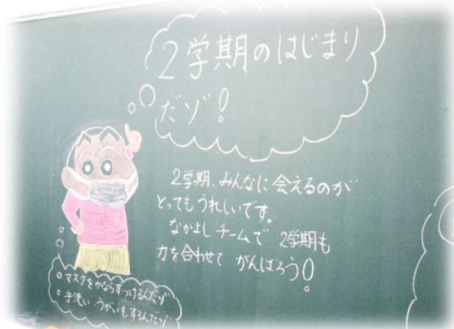 2学期のはじまり
だゾ!
2学期、みんなに会えるのが
とってもうれしいです。
なかよしチームで 2学期も
力を合わせて がんばろう!
。マスクをかならずつけるんだゾ
。手洗い うがいもするんだゾ